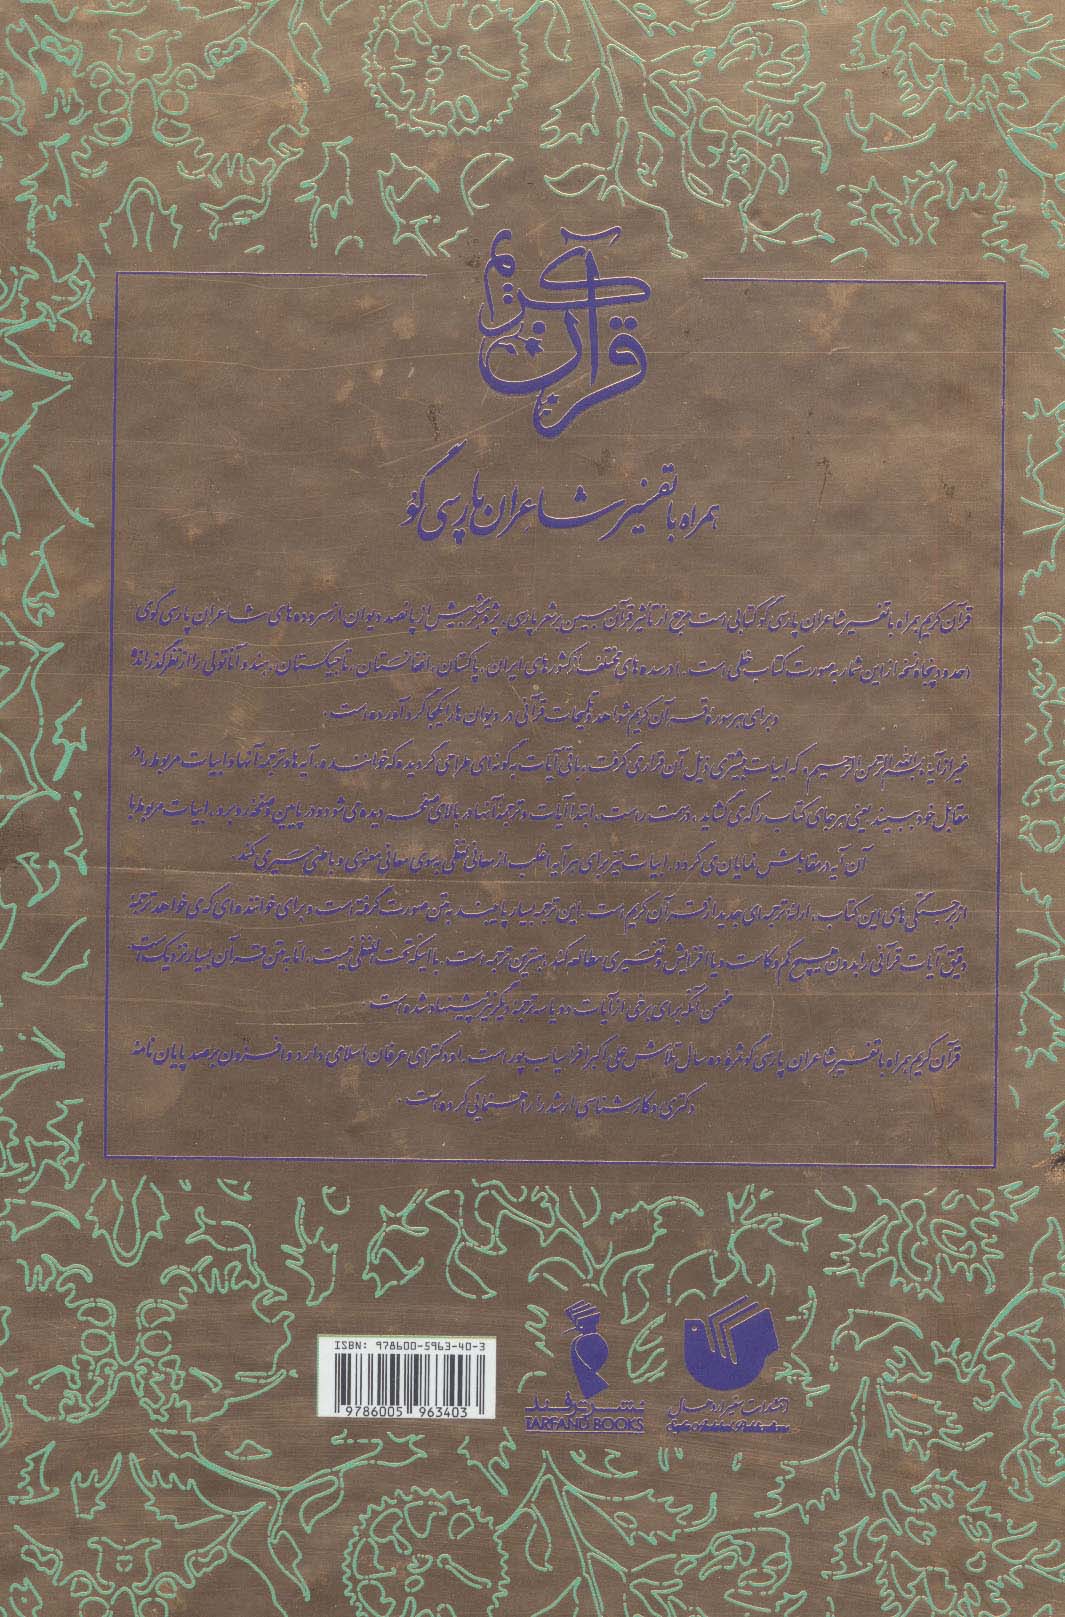 قرآن کریم
همراه با تفسیر شاعران پارسی گو
قرآن کریم همراه با تفسیر شاعران پارسی گو کتابی است مرجع از تأثیر قرآن مبین بر شعر پارسی. پژوهشگر بیش از پانصد دیوان از سروده های شاعران پارسی گوی
(حدود پنجاه نسخه از این شمار به صورت کتاب خطی است.) در سده های مختلف از کشورهای ایران، پاکستان، افغانستان، تاجیکستان، هند و آناتولی را از نظر گذرانده
و برای هر سوره قرآن کریم شواهد و تلمیحات قرآنی در دیوان ها را یکجا گرد آورده است.
غیر از آیهٔ بسم الله الرحمن الرحیم، که ابیات بیشتری ذیل آن قرار می گرفت، باقی آیات به گونه ای طراحی گردیده که خواننده، آیه ها و ترجمه آنها و ابیات مربوط را در
مقابل خود ببیند یعنی هر جای کتاب را که می گشاید، درست راست، ابتدا آیات و ترجمهٔ آنها در بالای صفحه دیده می شود و در پایین و صفحهٔ روبرو، ابیات مربوط با
آن آیه در مقابلش نمایان می گردد. ابیات نیز برای هر آیه اغلب از معانی لفظی به سوی معانی معنوی و باطنی سیر می کند.
از برجستگی های این کتاب، ارائهٔ ترجمه ای جدید از قرآن کریم است. این ترجمه بسیار پایبند به متن صورت گرفته است و برای خواننده ای که می خواهد ترجمهٔ
دقیق آیات قرآنی را بدون هیچ کم و کاست و یا افزایش و تفسیری مطالعه کند، بهترین ترجمه است. با اینکه تحت اللفظی نیست، اما به متن قرآن بسیار نزدیک است
ضمن آنکه برای برخی از آیات دو یا سه ترجمهٔ دیگر نیز پیشنهاد شده است.
قرآن کریم همراه با تفسیر شاعران پارسی گو ثمرهٔ ده سال تلاش علی اکبر افراسیاب پور است. او دکترای عرفان اسلامی دارد و افزون بر صد پایان نامهٔ
دکتری و کارشناسی ارشد را راهنمایی کرده است.
ISBN: 978600-5963-40-3
9786005 963403
نشر ترفند
TARFAND BOOKS
انتشارات سفیر اردهال